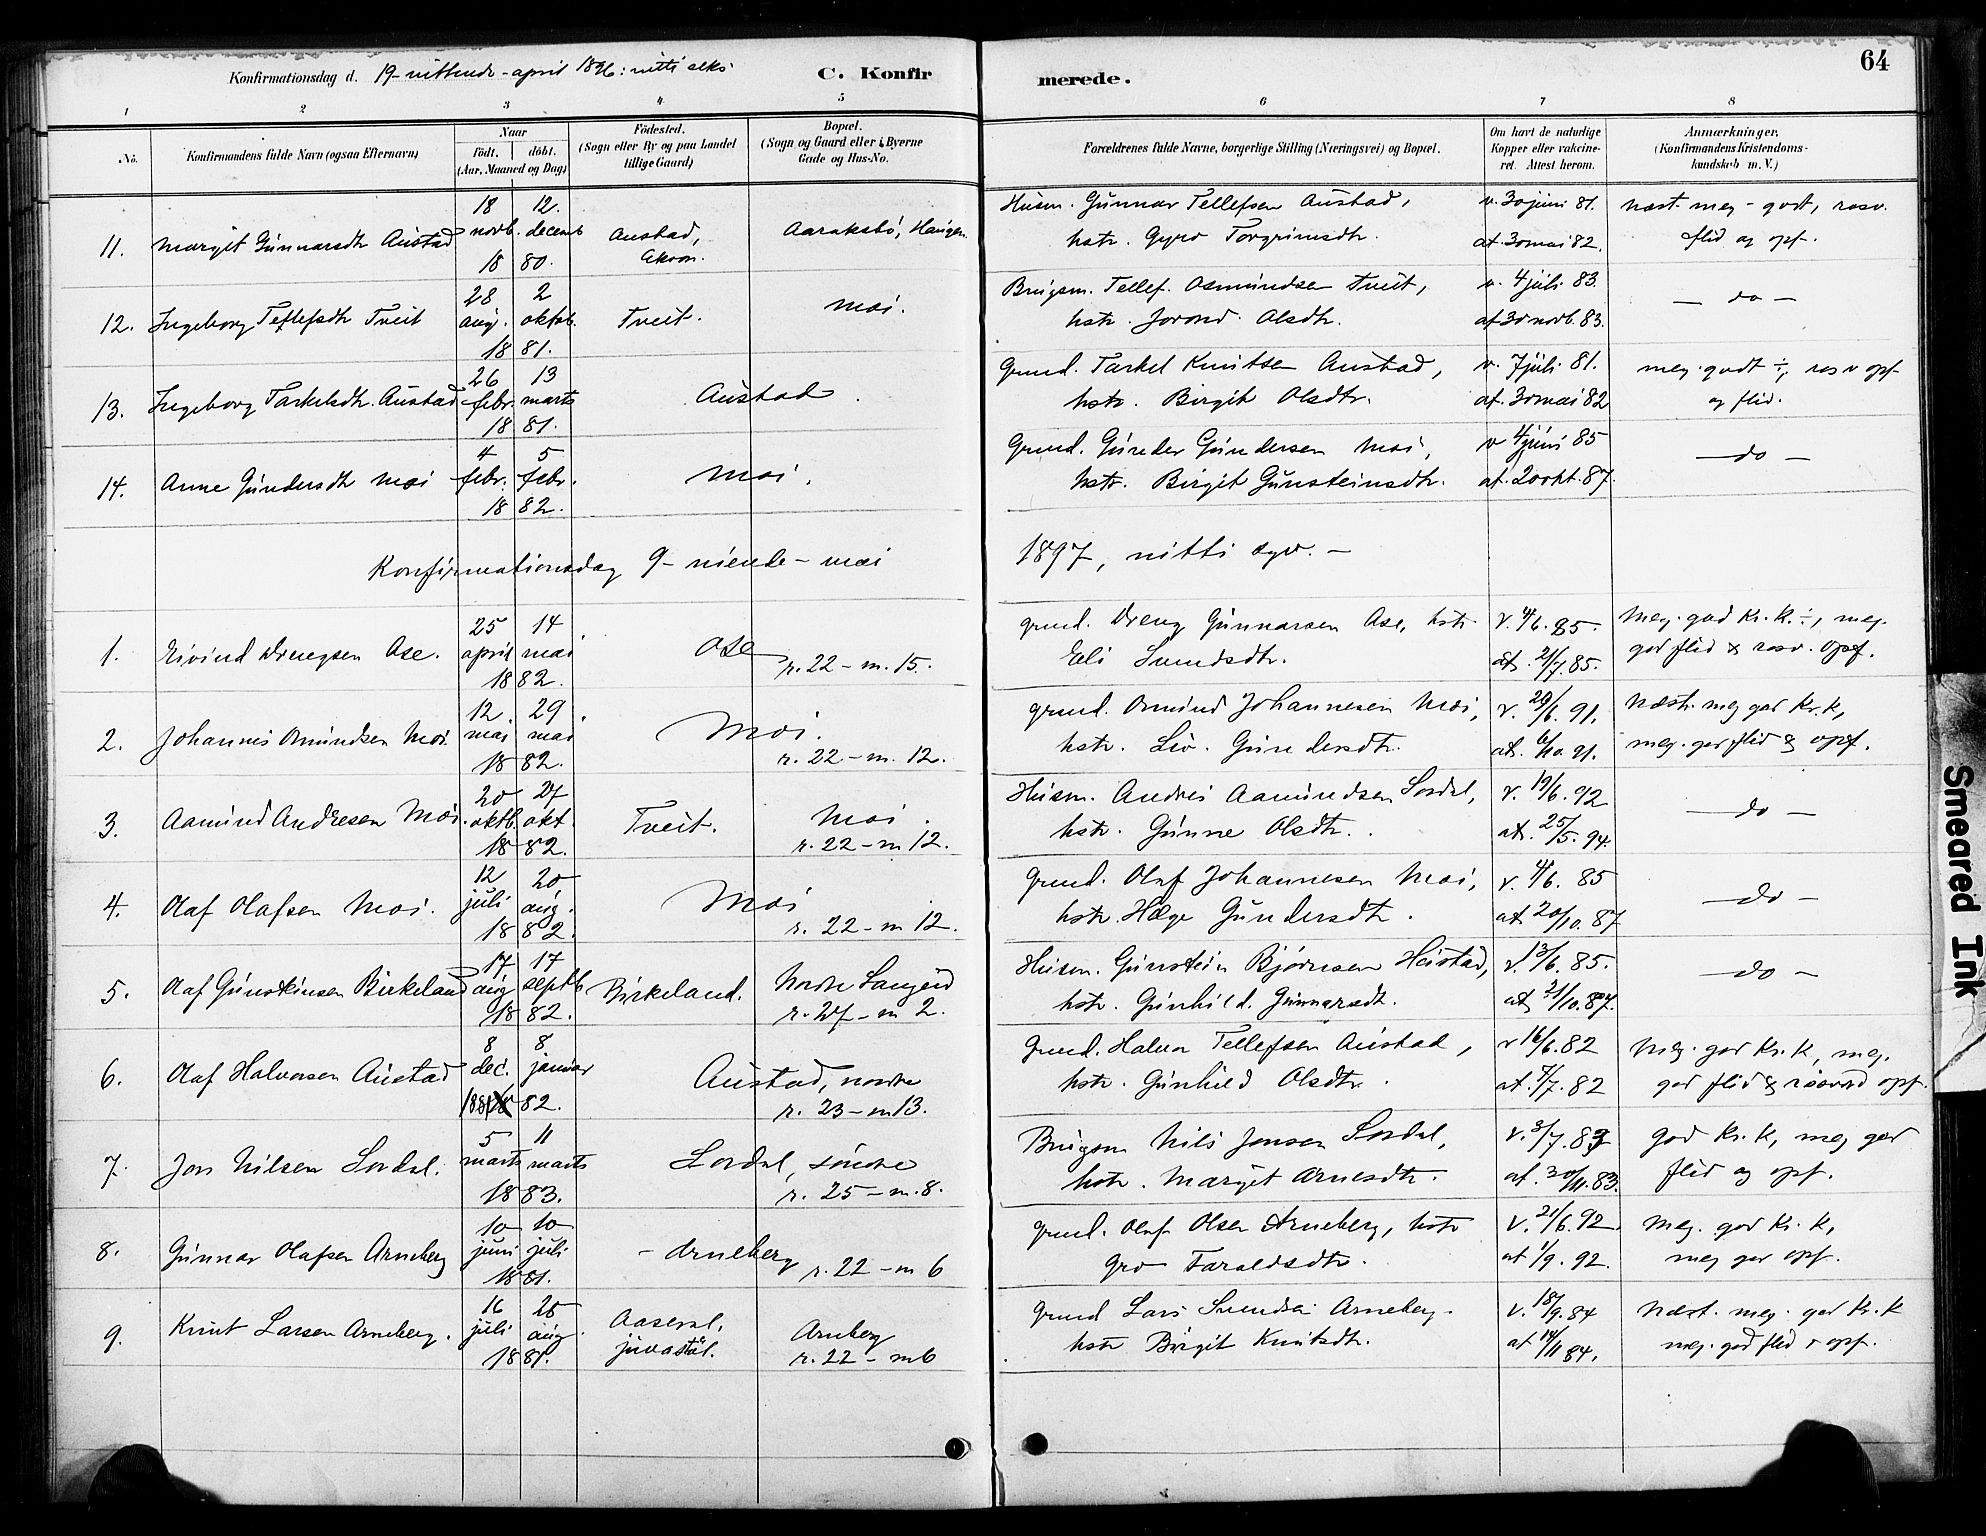 64
Konfirmationsdag d. 19-nittende-april 1896: nitti seks
C. Konfirmerede.
1 2 3 4 5 6 7 8
No.
Konfirmandens fulde Navn (ogsaa Efternavn)
Naar
født. døbt.
(Aar, Maaned og Dag)
Födested.
(Sogn eller By og paa Landet
tillige Gaard)
Bopæl.
(Sogn og Gaard eller i Byerne
Gade og Hus-No.
Forældrenes fulde Navne, borgerlige Stilling (Næringsvei) og Bopæl.
Om havt de naturlige
Kopper eller vakcine-
ret. Attest herom.
Anmærkninger.
(Konfirmandens Kristendoms-
kundskab m. V.)
11. Margit Gunnarsdtr Austad
18 novb. 12. decemb 1880.
Austad,
Aaraksbø, Haugen
Husm. Gunnar Tellefsen Austad,
hstr. Gyro Torgrimsdtr.
v. 30 juni 81.
at. 30 mai 82.
næst. meg. godt, rosv.
flid og opf.
12. Ingeborg Tellefsdtr Tveit
28 aug. 2 oktob. 1881.
Tveit.
Moi.
Brugsm. Tellef. Osmundsen Tveit,
hstr. Jorond. Olsdtr.
v. 4 juli 83.
at 30 novb. 83.
— do —
13. Ingeborg Tarkelsdtr. Austad
26 febr. 13 marts 1881.
Austad.
Grund. Tarkel Knutsen Austad,
hstr. Birgit Olsdtr.
v. 7 juli 81.
at. 30 mai 82
meg. godt ÷, rosv opf
og flid.
14. Anne Gundersdtr Moi
4 febr. 5 febr. 1882.
Moi.
Grund. Gunder Gundersen Moi,
hstr. Birgit Gunsteinsdtr.
v 4 juni 85
at. 20 okt. 87.
— do —
Konfirmationsdag 9- niende - mai 1897, nitti syv. —
1. Eivind Drengsen Ose.
25 april 14 mai 1882.
Ose
r. 22 – m. 15.
grund. Dreng Gunnarsen Ose, hstr.
Eli Svendsdtr.
v. 4/6. 85.
at. 21/7. 85.
Meg. god Kr. K. ÷, meg.
god flid & rosv. opf.
2. Johannes Omundsen Moi.
12. mai 29. mai 1882.
Moi.
r. 22 – m. 12.
grund. Omund Johannesen Moi,
hstr. Liv. Gundersdtr.
v. 20/6. 91.
at. 6/10. 91.
Næst. meg god Kr. K,
meg. god flid & opf.
3. Aamund Andresen Moi.
20 oktb. 27 okt. 1882.
Tveit.
Moi.
r. 22 – m 12.
Husm. Andres Aamundsen Sordal,
hstr. Gunne Olsdtr.
v. 19/6. 92
at. 25/5. 94.
— do —
4. Olaf Olafsen Moi.
12 juli 20 aug. 1882.
Moi
r. 22 – m 12.
Grund. Olaf Johannesen Moi,
hstr. Hæge Gundersdtr.
v. 4/6. 85
at 20/10. 87
— do —
5. Olaf Gunsteinsen Birkeland
17 aug 17 septb. 1882.
Birkeland.
Nordre Langeid
r. 27 – m 2.
Husm. Gunstein Bjørnsen Heistad,
hstr. Gunhild. Gunnarsdtr.
v. 13/6. 85.
at 21/10. 87.
— do —
6. Olaf Halvorsen Austad
8 dec. 1881 8 januar 82.
Austad, nordre
r. 23 – m 13.
Grund. Halvor Tellefsen Austad,
hstr. Gunhild Olsdtr.
v 16/6. 82
at. 7/7. 82
Meg. god Kr. K, meg.
god flid & rosverd opf.
7. Jon Nilsen Sordal.
5 marts 11 marts 1883.
Sordal, søndre
r. 25 – m. 8.
Brugsm Nils Jonsen Sordal,
hstr. Margit Arnesdtr.
v. 3/7. 83
at. 30/11. 83.
god Kr. K, meg god
flid og opf.
8. Gunnar Olafsen Arneberg
10 juni 10 juli 1881.
– Arneberg
r. 22 – m 6
grund. Olaf Olsen Arneberg, hstr
Gro Taraldsdtr.
v. 21/6. 92.
at 1/9. 92.
Meg. god Kr. K,
meg god opf.
9. Knut Larsen Arneberg.
16 juli 25 aug. 1881.
Aaseral,
juvastøl.
Arnberg
r. 22 – m 6
grund Lars Svendsen Arneberg.
hstr Birgit Knutsdtr.
v. 18/9. 84
at 14/11 84.
Næst. meg. god Kr. K
meg. god flid & opf.
Smeared Ink